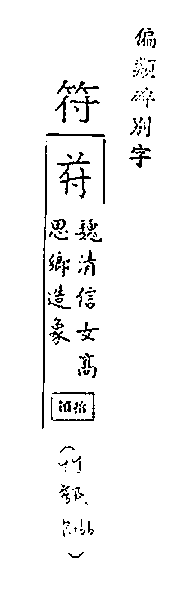 偏類碑別字
符
苻
魏清信女髙
思鄉造象